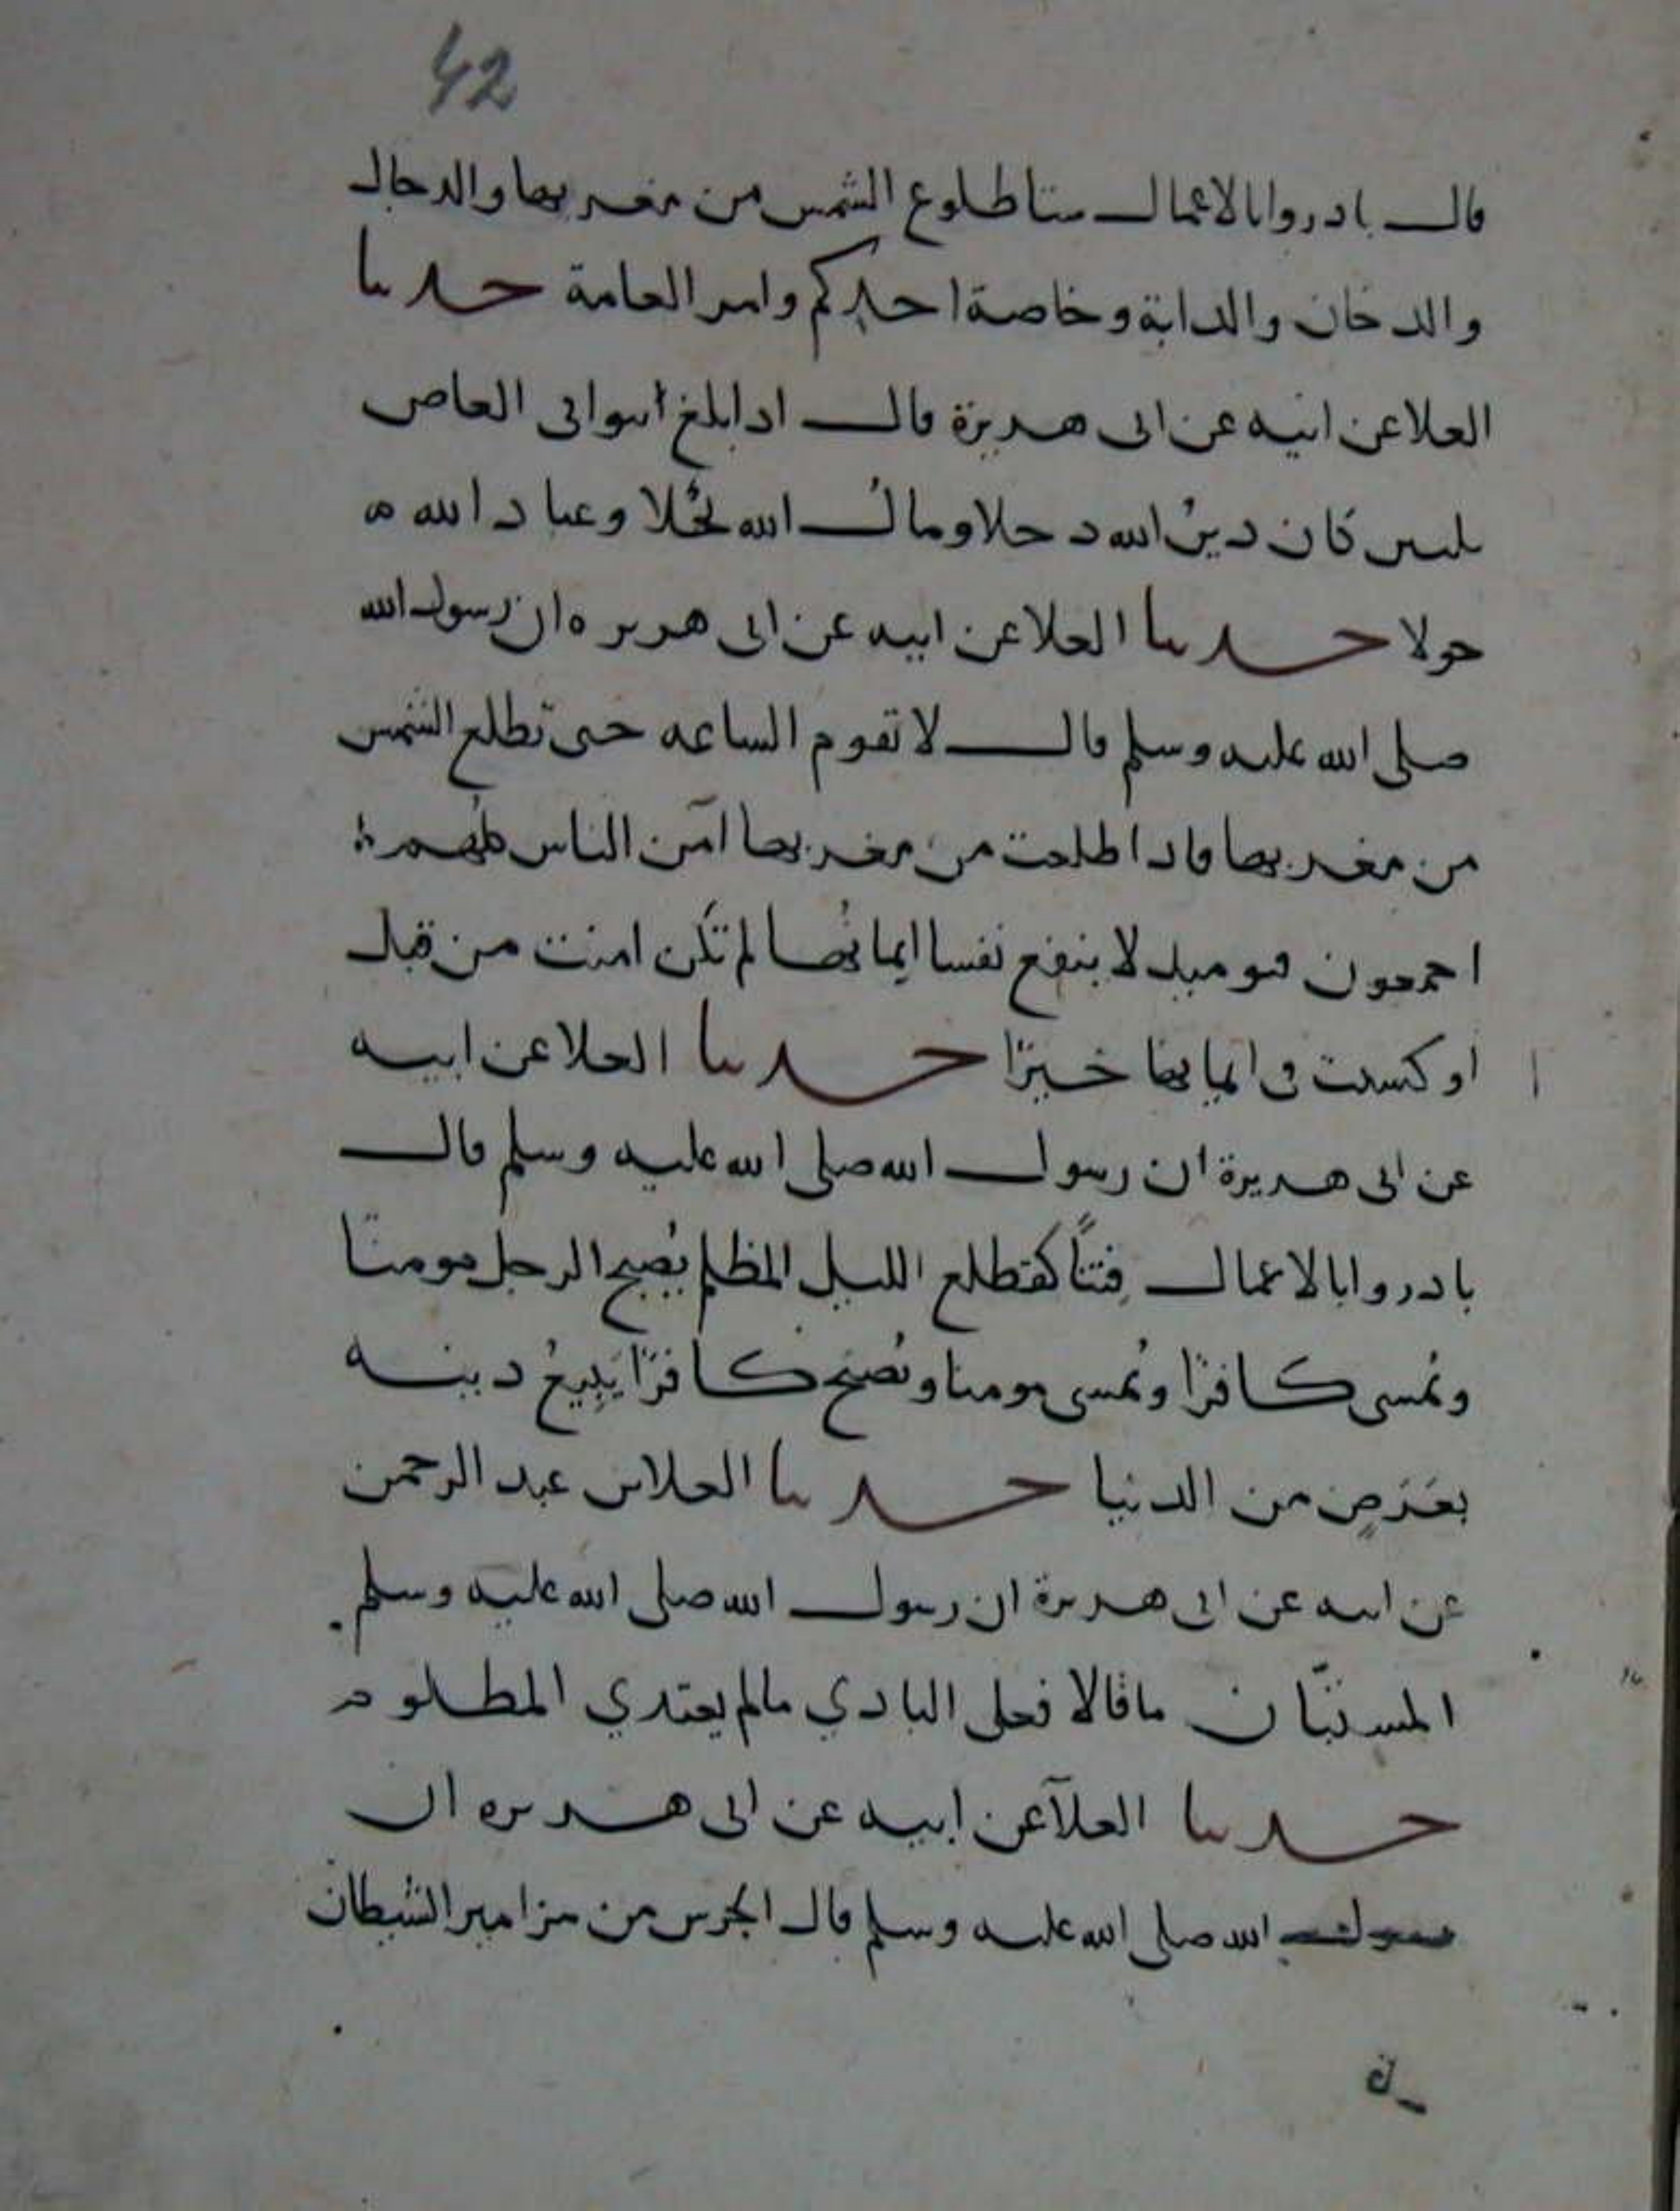 42
قال بادروا بالاعمال ستا طلوع الشمس من مغربها والدجال
والدخان والدابة وخاصة احدكم وامر العامة حدثنا
العلا عن ابيه عن ابى هريرة قال اذا بلغ بنوا ابى العاص
ثلثين كان دين الله دخلا ومال الله نحلا وعباد الله
خولا حدثنا العلا عن ابيه عن ابى هريره ان رسول الله
صلى الله عليه وسلم قال لا تقوم الساعه حتى تطلع الشمس
من مغربها فاذا طلعت من مغربها آمن الناس كلهم
اجمعون فيوميذ لا ينفع نفسا ايمانها لم تكن امنت من قبل
او كسبت فى ايمانها خيرًا حدثنا العلا عن ابيه
عن ابى هريرة ان رسول الله صلى الله عليه وسلم قال
بادروا بالاعمال فتنًا كقطلع الليل المظلم يُصبح الرجل مومنا
ويُمسى كافرًا ويُمسى مومنا ويُصبح كافرًا يَبِيعُ دينه
بعَرَضٍ من الدنيا حدثنا العلا بن عبد الرحمن
عن ابيه عن ابى هريرة ان رسول الله صلى الله عليه وسلم
المستبّان ماقالا فعلى البادي مالم يعتدي المظلوم
حدثنا العلآ عن ابيه عن ابى هريره ان
رسول الله صلى الله عليه وسلم قال الجرس من مزامير الشيطان